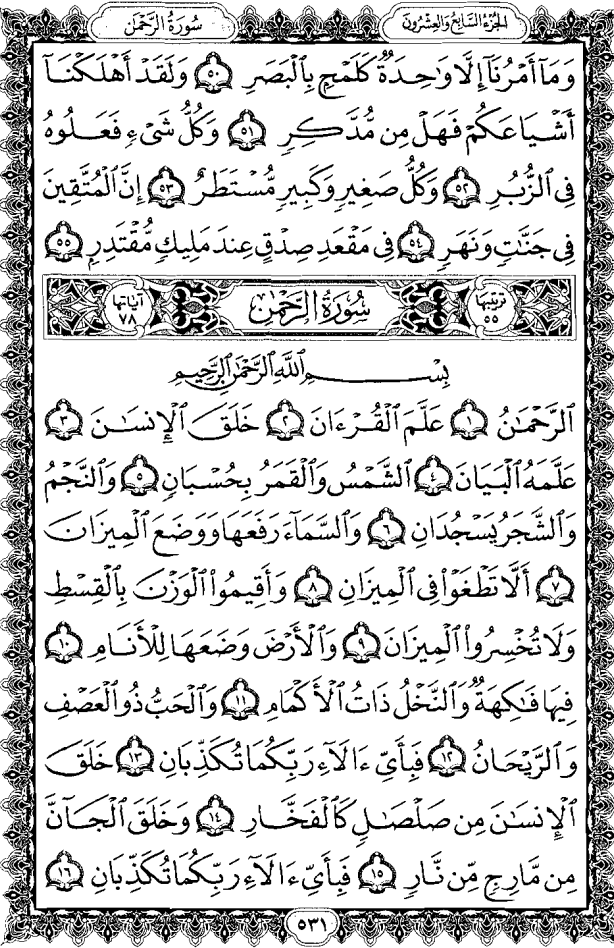 سُورَةُ الرَّحْمٰن
الجُزءُ السَّابِعُ وَالعِشرُونَ
وَمَآ أَمْرُنَآ إِلَّا وَٰحِدَةٌ كَلَمْحٍۭ بِٱلْبَصَرِ ٥٠ وَلَقَدْ أَهْلَكْنَآ
أَشْيَاعَكُمْ فَهَلْ مِن مُّدَّكِرٍ ٥١ وَكُلُّ شَىْءٍ فَعَلُوهُ
فِى ٱلزُّبُرِ ٥٢ وَكُلُّ صَغِيرٍ وَكَبِيرٍ مُّسْتَطَرٌ ٥٣ إِنَّ ٱلْمُتَّقِينَ
فِى جَنَّٰتٍ وَنَهَرٍ ٥٤ فِى مَقْعَدِ صِدْقٍ عِندَ مَلِيكٍ مُّقْتَدِرٍۭ ٥٥
ترتيبها ٥٥ سُورَةُ الرَّحْمٰن آياتها ٧٨
بِسْمِ ٱللَّهِ ٱلرَّحْمَٰنِ ٱلرَّحِيمِ
ٱلرَّحْمَٰنُ ١ عَلَّمَ ٱلْقُرْءَانَ ٢ خَلَقَ ٱلْإِنسَٰنَ ٣
عَلَّمَهُ ٱلْبَيَانَ ٤ ٱلشَّمْسُ وَٱلْقَمَرُ بِحُسْبَانٍ ٥ وَٱلنَّجْمُ
وَٱلشَّجَرُ يَسْجُدَانِ ٦ وَٱلسَّمَآءَ رَفَعَهَا وَوَضَعَ ٱلْمِيزَانَ
٧ أَلَّا تَطْغَوْا۟ فِى ٱلْمِيزَانِ ٨ وَأَقِيمُوا۟ ٱلْوَزْنَ بِٱلْقِسْطِ
وَلَا تُخْسِرُوا۟ ٱلْمِيزَانَ ٩ وَٱلْأَرْضَ وَضَعَهَا لِلْأَنَامِ ١٠
فِيهَا فَٰكِهَةٌ وَٱلنَّخْلُ ذَاتُ ٱلْأَكْمَامِ ١١ وَٱلْحَبُّ ذُو ٱلْعَصْفِ
وَٱلرَّيْحَانُ ١٢ فَبِأَىِّ ءَالَآءِ رَبِّكُمَا تُكَذِّبَانِ ١٣ خَلَقَ
ٱلْإِنسَٰنَ مِن صَلْصَٰلٍ كَٱلْفَخَّارِ ١٤ وَخَلَقَ ٱلْجَآنَّ
مِن مَّارِجٍ مِّن نَّارٍ ١٥ فَبِأَىِّ ءَالَآءِ رَبِّكُمَا تُكَذِّبَانِ ١٦
٥٣١